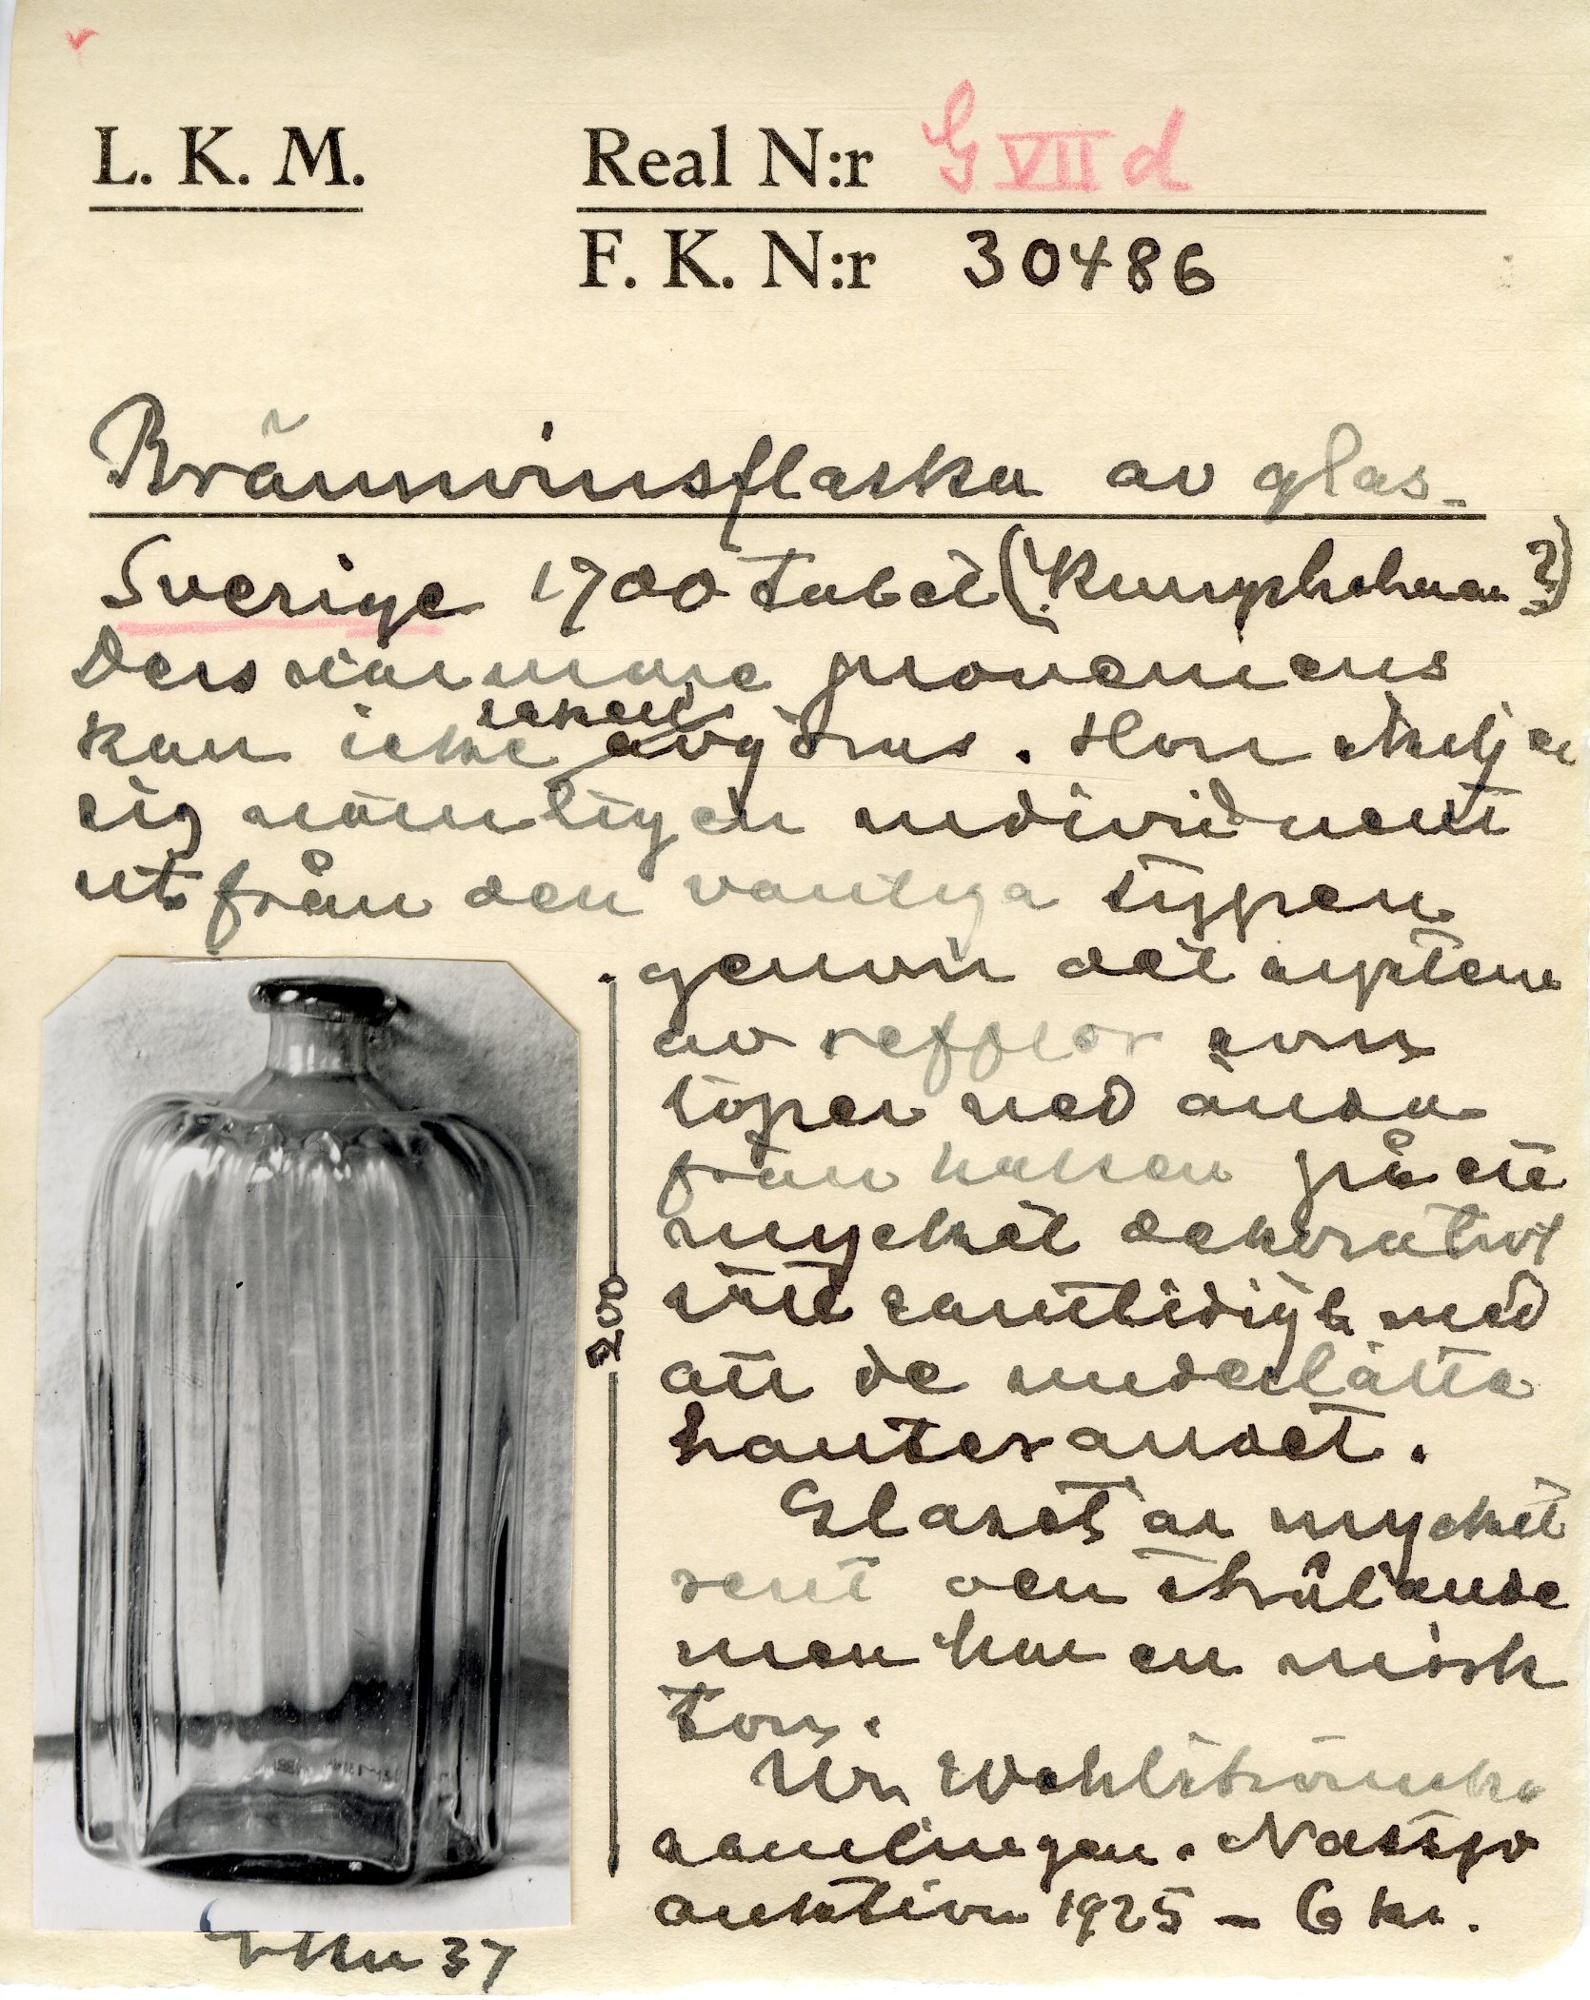 L. K. M.
Real N:r G VII d
F. K. N:r 30486
Brännvinsflaska av glas.
Sverige 1700 talet (? Rumphshamn ?)
Dess närmare proveniens
kan icke säkert avgöras. Hon skiljer
sig nämligen individuellt
ut från den vanliga typen
genom det system
av refflor som
löper ned ända
från halsen på ett
mycket dekorativt
sätt samtidigt med
att de underlätta
hanterandet.
Glaset är mycket
rent och strålande
men har en mörk
ton.
Ur Wahlströmska
samlingen. Nässjö
auktion 1925 – 6 kr.
200
37